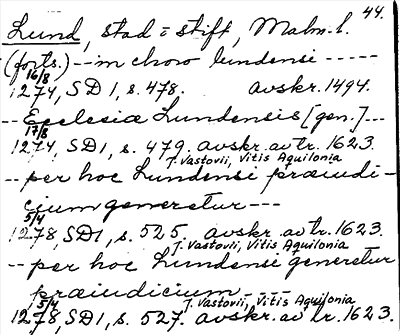 44.
Lund, stad o stift, Malm. l.
(forts.) -- in choro lundensi -----
16/8
1274, SD 1, s. 478. avskr. 1494.
-- Ecclesiæ Lundensis [gen.] --
17/8
1274, SD 1, s. 479. avskr. av tr. 1623.
J. Vastovii, Vitis Aquilonia
-- per hoc Lundensi præiudi-
cium generetur ---
5/4
1278, SD 1, s. 525. avskr. av tr. 1623.
J. Vastovii, Vitis Aquilonia
-- per hoc Lundensi generetur
præiudicium ----
5/4 J. Vastovii, Vitis Aquilonia
1278, SD 1, s. 527. avskr. av tr. 1623.